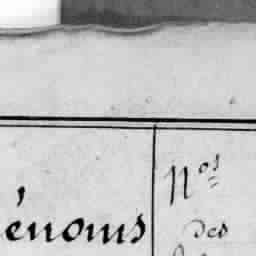 énoms
Nos
des